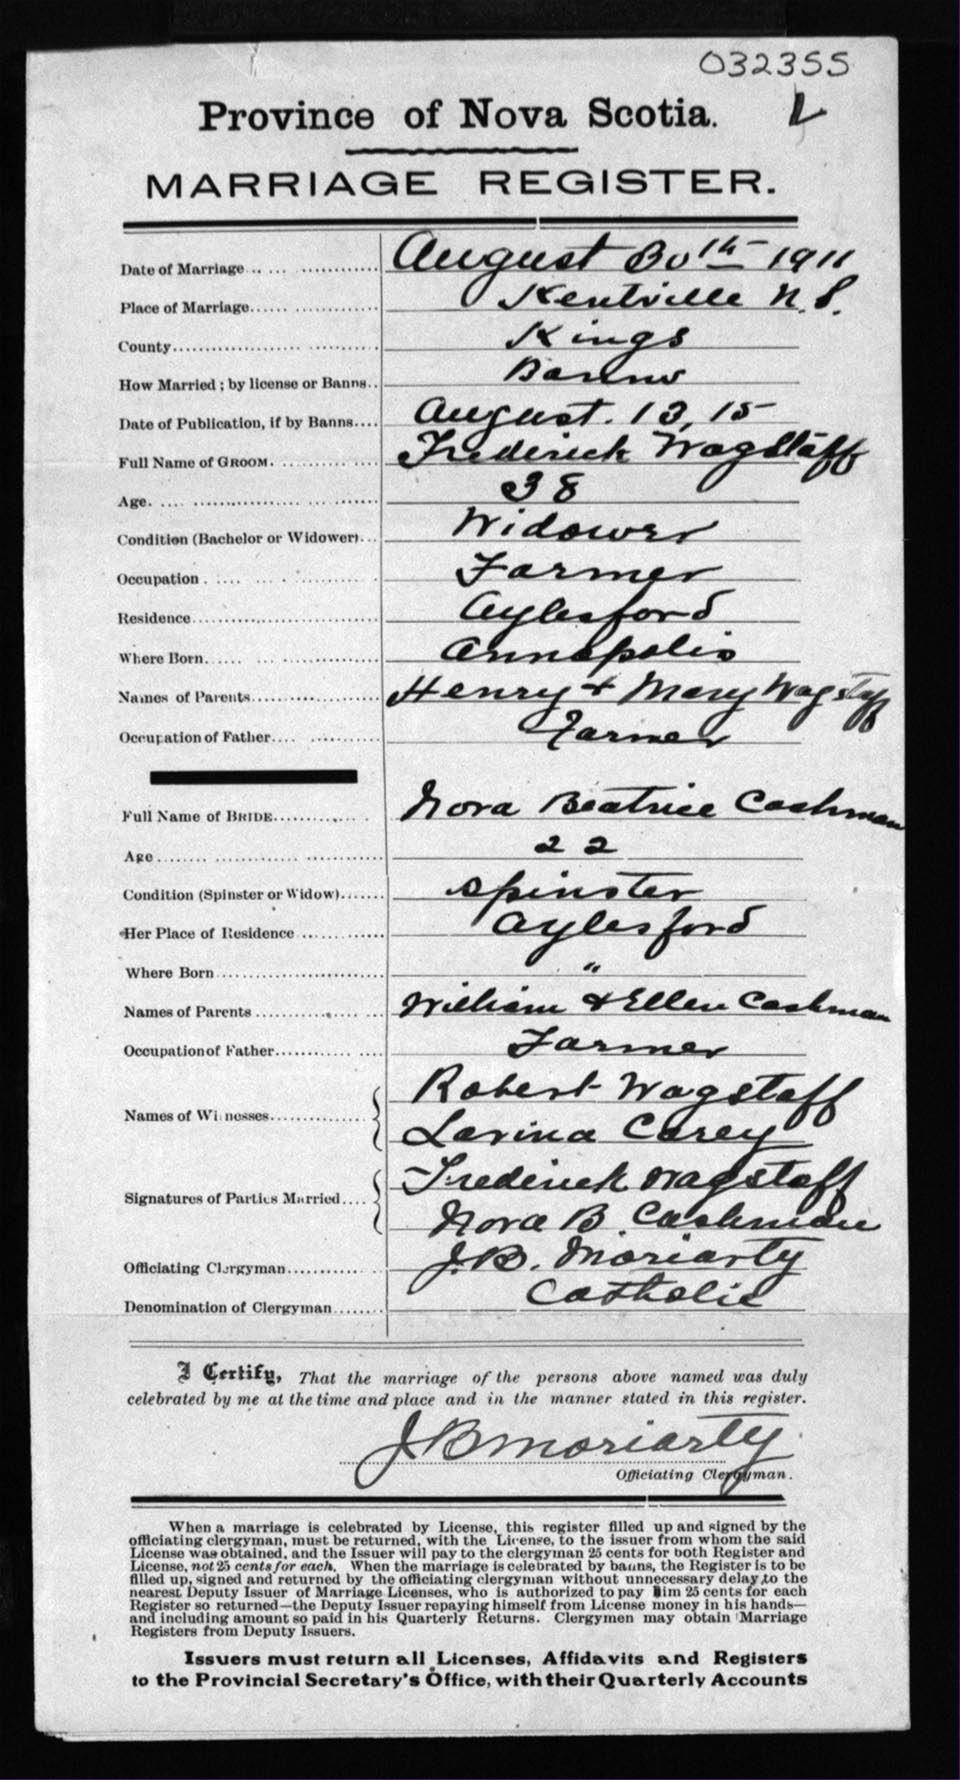 032355
Province of Nova Scotia.
MARRIAGE REGISTER.
Date of Marriage August 30th 1911
Place of Marriage Kentville N.S.
County Kings
How Married; by license or Banns.. Banns
Date of Publication, if by Banns.... August. 13, 15
Full Name of GROOM. Frederick Wagstaff
Age. 38
Condition (Bachelor or Widower)... Widower
Occupation Farmer
Residence Aylesford
Where Born Annapolis
Names of Parents Henry + Mary Wagstaff
Occupation of Father Farmer
Full Name of BRIDE Nora Beatrice Cashman
Age 22
Condition (Spinster or Widow) Spinster
Her Place of Residence Aylesford
Where Born "
Names of Parents William & Ellen Cashman
Occupation of Father Farmer
Names of Witnesses Robert Wagstaff
Lavina Carey
Signatures of Parties Married Frederick Wagstaff
Nora B. Cashman
Officiating Clergyman J.B. Moriarty
Denomination of Clergyman Catholic
I Certify, That the marriage of the persons above named was duly
celebrated by me at the time and place and in the manner stated in this register.
J B Moriarty
Officiating Clergyman.
When a marriage is celebrated by License, this register filled up and signed by the
officiating clergyman, must be returned, with the License, to the issuer from whom the said
License was obtained, and the Issuer will pay to the clergyman 25 cents for both Register and
License, not 25 cents for each. When the marriage is celebrated by banns, the Register is to be
filled up, signed and returned by the officiating clergyman without unnecessary delay to the
nearest Deputy Issuer of Marriage Licenses, who is authorized to pay him 25 cents for each
Register so returned—the Deputy Issuer repaying himself from License money in his hands—
and including amount so paid in his Quarterly Returns. Clergymen may obtain Marriage
Registers from Deputy Issuers.
Issuers must return all Licenses, Affidavits and Registers
to the Provincial Secretary's Office, with their Quarterly Accounts